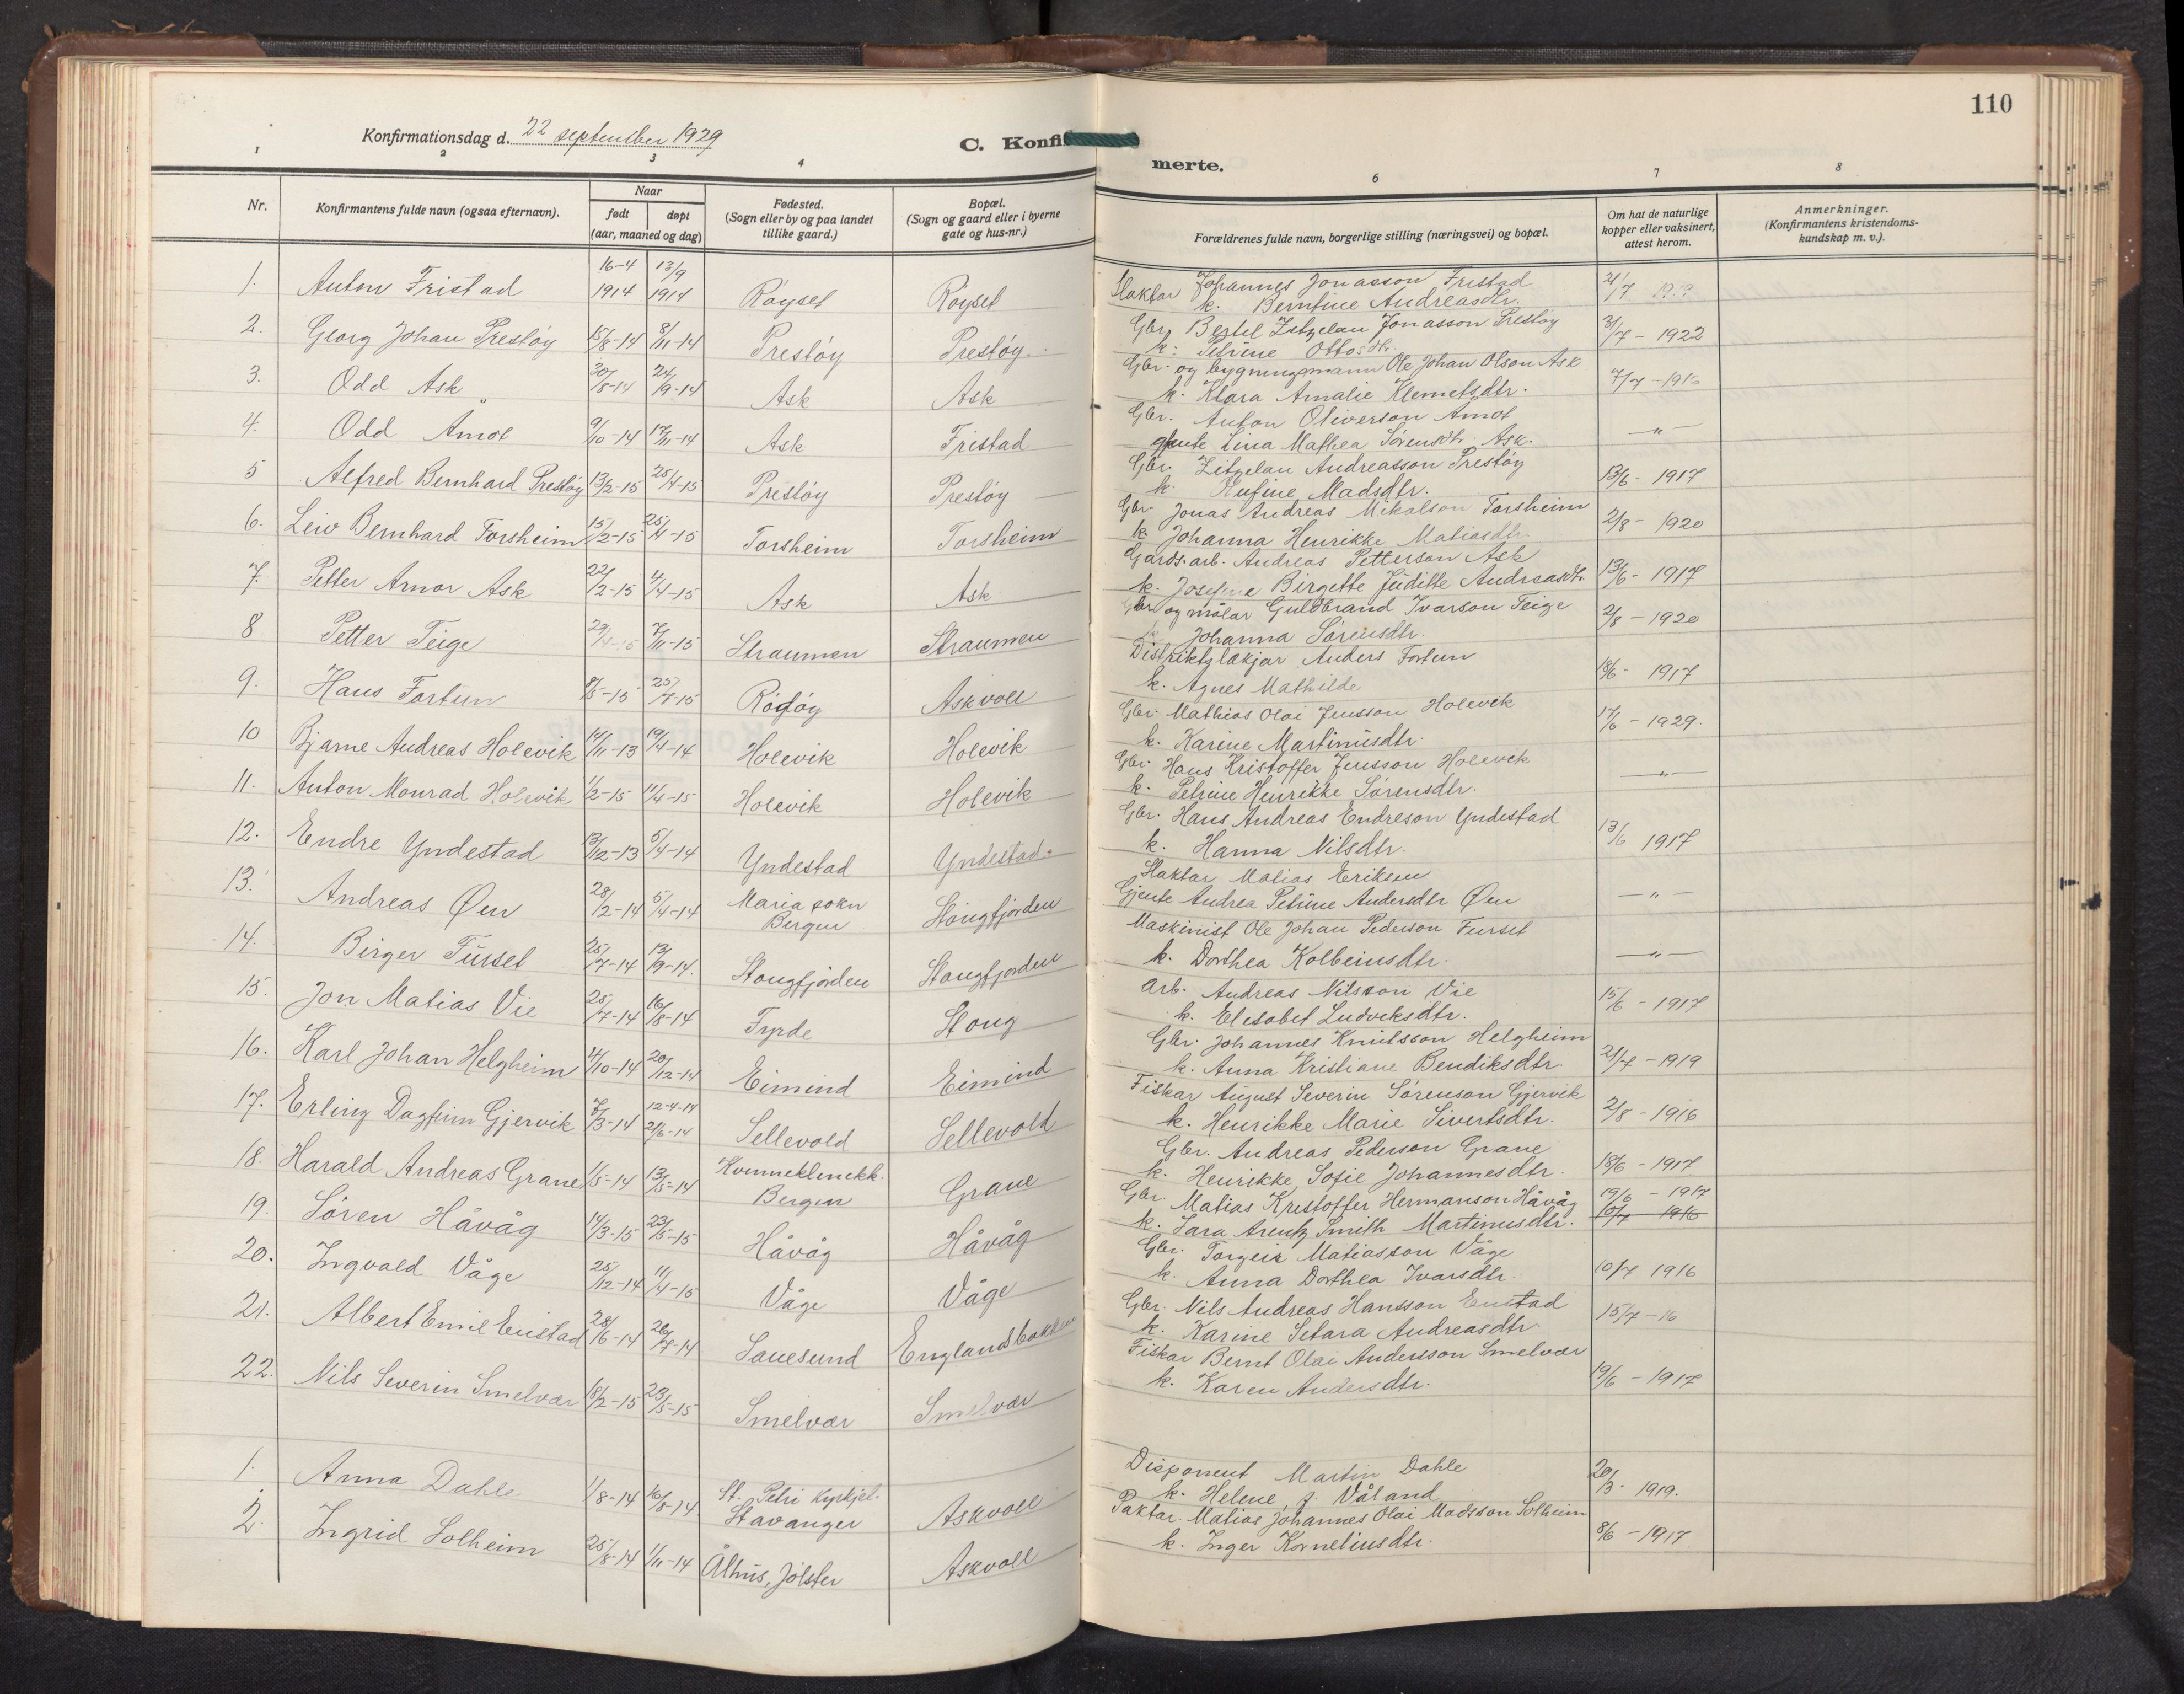 110
Konfirmationsdag d. 22 september 1929
C. Konfi
merte.
1 2 3 4 6 7 8
Nr.
Konfirmantens fulde navn (ogsaa efternavn).
Naar
født døpt
(aar, maaned og dag)
Fødested.
(Sogn eller by og paa landet
tillike gaard.)
Bopæl.
(Sogn og gaard eller i byerne
gate og hus-nr.)
Forældrenes fulde navn, borgerlige stilling (næringsvei) og bopæl.
Om hat de naturlige
kopper eller vaksinert,
attest herom.
Anmerkninger.
(Konfirmantens kristendoms-
kundskap m. v.).
1. Anton Fristad 16-4 1914 13/9 1914 Røyset Røyset
Slaktar Johannes Jonasson Fristad
k. Berntine Andreasdtr.
2. Georg Johan Prestøy 15/8-14 8/11-14 Prestøy Prestøy
Gbr. Bertel Zitzelau Jonasson Prestøy 31/7 - 1922
k. Petrine Ottosdtr.
3. Odd Ask 30/8-14 24/9-14 Ask Ask
Gbr. og bygningsmann Ole Johan Olson Ask
k. Klara Amalie Klemetsdtr.
4. Odd Åmot 9/10-14 17/11-14 Ask Fristad
Gbr. Anton Oliverson Åmot — " —
gjente Lina Mathea Sørensdtr. Ask.
5 Alfred Bernhard Prestøy 13/2-15 25/4-15 Prestøy Prestøy
Gbr. Zitzelau Andreasson Prestøy 13/6 - 1917
k. Rufine Madsdtr.
6. Leiv Bernhard Torsheim 15/2-15 25/4-15 Torsheim Torsheim
Gbr. Jonas Andreas Mikalson Torsheim 2/8 - 1920
k. Johanna Henrikke Matiasdtr.
7. Petter Arnor Ask 22/2-15 4/4-15 Ask Ask
Gards.arb. Andreas Petterson Ask 13/6 - 1917
k. Josefine Birgette Juditte Andreasdtr.
8 Petter Teige 29/4-15 7/11-15 Straumen Straumen
Gbr og målar Guldbrand Ivarson Teige 2/8 - 1920
k. Johanna Sørensdtr.
9. Hans Fortun 8/5-15 25/7-15 Askvoll
Distriktslækjar Anders Fortun 18/6 - 1917
k. Agnes Mathilde
10 Bjarne Andreas Holevik 14/11-13 19/4-14 Holevik Holevik
Gbr. Mathias Olai Jensson Holevik 17/6 - 1929.
k. Karine Martinusdtr.
11. Anton Monrad Holevik 1/2-15 11/4-15 Holevik Holevik
Gbr. Hans Kristoffer Jensson Holevik — " —
k. Petrine Henrikke Sørensdtr.
12. Endre Yndestad 13/12-13 5/4-14 Yndestad Yndestad
Gbr. Hans Andreas Endreson Yndestad 13/6 1917
k. Hanna Nilsdtr.
13. Andreas Øen 28/2-14 5/4-14 Maria sokn Bergen Stongfjorden
Slaktar Matias Eriksen — " —
Gjente Andrea Petrine Andersdtr Øen
14. Birger Furset 25/7-14 13/9-14. Stongfjorden Stongfjorden
Maskinist Ole Johan Pederson Furset — " —
k. Dorthea Kolbeinsdtr.
15. Jon Matias Vie 25/7-14 16/8-14 Fyrde Stong
Arb. Andreas Nilsson Vie 15/6 - 1917
k. Elisabet Ludveksdtr.
16. Karl Johan Helgheim 4/10-14 20/12-14 Eimind Eimind
Gbr. Johannes Knutsson Helgheim 21/7 - 1919
k. Anna Kristiane Bendiksdtr.
17. Erling Dagfinn Gjervik 7/3-14 12-4-14 21/6-14 Sellevold Sellevold
Fiskar August Severin Sørenson Gjervik 2/8 - 1916
k. Henrikke Marie Sivertsdtr.
18. Harald Andreas Grane 1/5-14 13/5-14 Kvinneklinikk. Bergen Grane
Gbr. Andreas Pederson Grane 18/6 - 1917
k. Henrikke Sofie Johannesdtr.
19. Søren Håvåg 14/3-15 23/5-15 Håvåg Håvåg
Gbr. Matias Kristoffer Hermanson Håvåg 19/6 - 1917
k. Sara Arentz Smith Martinusdtr. 10/7 1916
20. Ingvald Våge 25/12-14 11/4-15 Våge Våge
Gbr. Torgeir Matiasson Våge 10/7 1916
k. Anna Dorthea Ivarsdtr.
21. Albert Emil Eustad 28/6-14 26/7-14 Sauesund Englandsbakken
Gbr. Nils Andreas Hansson Eustad 15/7-16
k. Karine Setara Andreasdtr.
22. Nils Severin Smelvær 18/2-15 23/5-15 Smelvær Smelvær
Fiskar Bernt Olai Andersson Smelvær 19/6 - 1917
k. Karen Andersdtr.
1. Anna Dahle 1/8-14 16/8-14 St. Petri Kyrkjel. Stavanger Askvoll
Disponent Martin Dahle 20/3 - 1919.
k. Helene, f. Våland
2. Ingrid Solheim 25/8-14 1/11-14 Ålhus, Jølster Askvoll
Paktar. Matias Johannes Olai Madsson Solheim 8/6 - 1917
k. Inger Korneliusdtr.